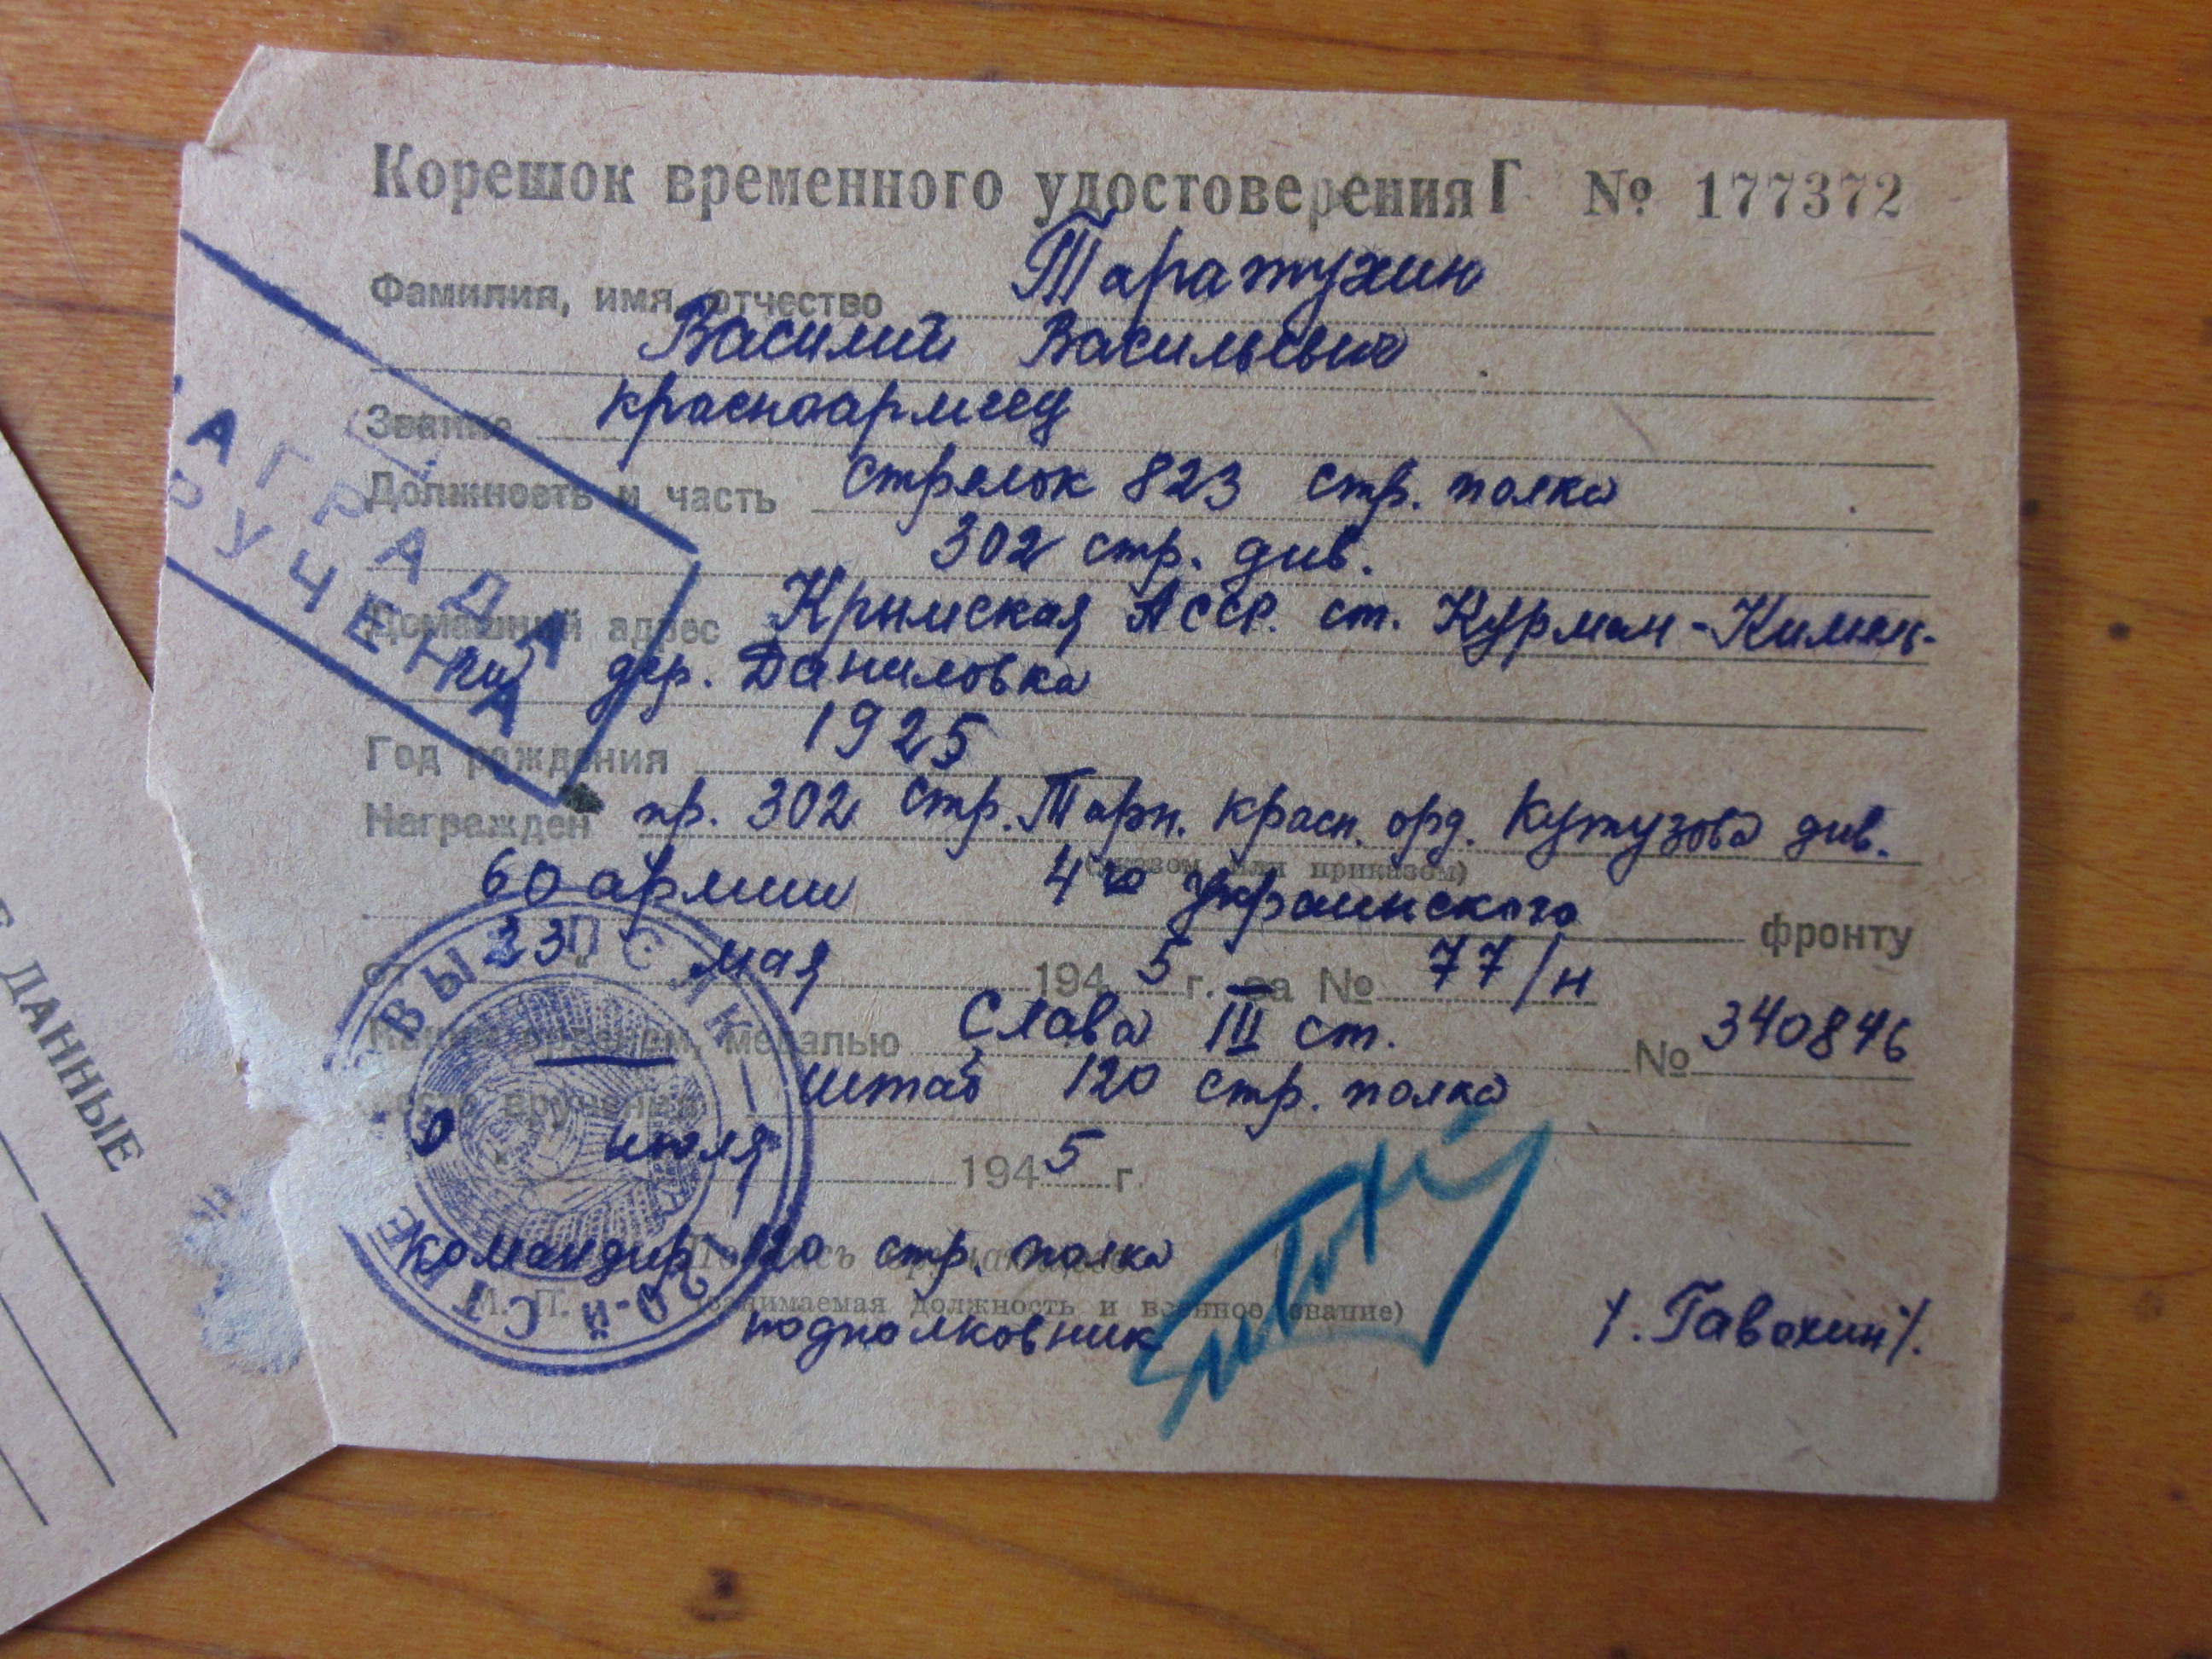 Корешок временного удостоверения Г № 177372
Фамилия, имя, отчество Таратухин
Василий Васильевич
Звание красноармеец
Должность и часть стрелок 823 стр. полка
302 стр. див.
Домашний адрес Крымская АССР. ст. Курман-Кимель-
чи дер. Даниловка
Год рождения 1925
Награжден пр. 302 стр. Тарн. красн. орд. Кутузова див.
(указом или приказом)
60 армии 4го Украинского фронту
от 23 мая 1945 г. за № 77/н
орденом, медалью Слава III ст. № 340846
Место вручения штаб 120 стр. полка
июля 1945 г.
Командир 120 стр. полка
Подпись
М. П. (занимаемая должность и военное звание)
подполковник /.Гавохин/.
НАГРАДА
ВРУЧЕНА
ДАННЫЕ